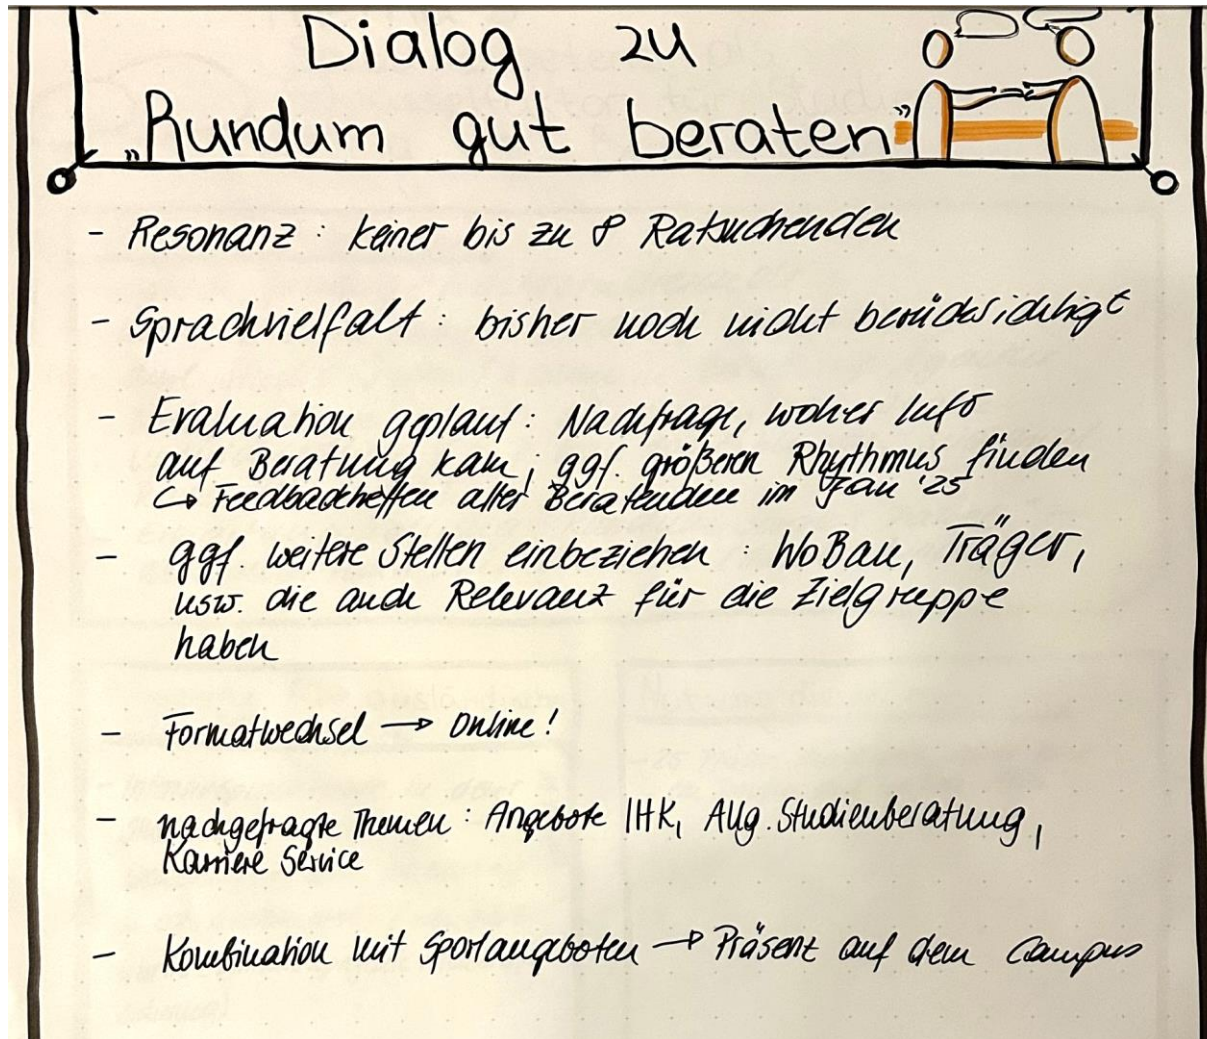 Dialog zu
„Rundum gut beraten”
- Resonanz: keiner bis zu 8 Ratsuchenden
- Sprachvielfalt: bisher noch nicht berücksichtigt
- Evaluation geplant: Nachfrage, woher Info
auf Beratung kam; ggf. größeren Rhythmus finden
↳ Feedbacktreffen aller Beratenden im Jan '25
- ggf. weitere Stellen einbeziehen: WoBau, Träger,
usw. die auch Relevanz für die Zielgruppe
haben
- Formatwechsel → Online!
- nachgefragte Themen: Angebote IHK, Allg. Studienberatung,
Karriere Service
- Kombination mit Sportangeboten → Präsenz auf dem Campus